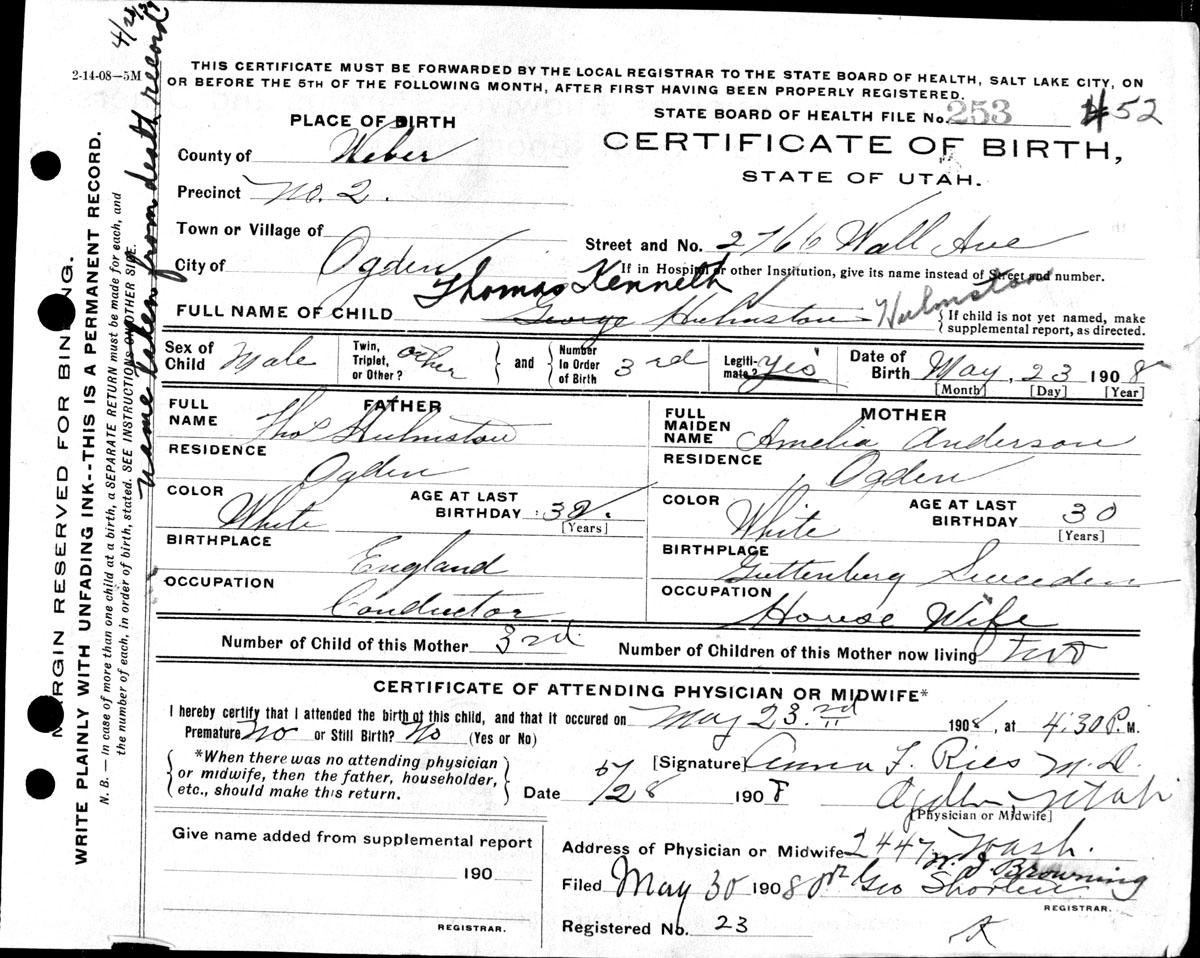 2-14-08—5M
4/28
THIS CERTIFICATE MUST BE FORWARDED BY THE LOCAL REGISTRAR TO THE STATE BOARD OF HEALTH, SALT LAKE CITY, ON
OR BEFORE THE 5TH OF THE FOLLOWING MONTH, AFTER FIRST HAVING BEEN PROPERLY REGISTERED.
STATE BOARD OF HEALTH FILE No. 253 52
PLACE OF BIRTH
CERTIFICATE OF BIRTH,
STATE OF UTAH.
County of Weber
Precinct No. 2.
Town or Village of
Street and No. 2766 Wall Ave
City of Ogden
If in Hospital or other Institution, give its name instead of Street and number.
Thomas Kenneth
FULL NAME OF CHILD George Hulmston Hulmston
{If child is not yet named, make
supplemental report, as directed.
Sex of Child Male
Twin, Triplet, or Other? other } and { Number In Order of Birth 3rd
Legitimate? Yes
Date of Birth May, 23 1908
[Month] [Day] [Year]
FATHER
FULL NAME Thos Hulmston
RESIDENCE Ogden
COLOR White AGE AT LAST BIRTHDAY 32. [Years]
BIRTHPLACE England
OCCUPATION Conductor
MOTHER
FULL MAIDEN NAME Amelia Anderson
RESIDENCE Ogden
COLOR White AGE AT LAST BIRTHDAY 30 [Years]
BIRTHPLACE Guttenberg Sweeden
OCCUPATION House Wife
Number of Child of this Mother 3rd Number of Children of this Mother now living two
CERTIFICATE OF ATTENDING PHYSICIAN OR MIDWIFE*
I hereby certify that I attended the birth of this child, and that it occured on May 23rd 1908, at 4:30 P. M.
Premature? No or Still Birth? No (Yes or No)
*When there was no attending physician
or midwife, then the father, householder,
etc., should make this return.
[Signature] Anna F. Ries M.D.
Date 5/28 1908 Ogden, Utah
[Physician or Midwife]
Give name added from supplemental report
190
REGISTRAR.
Address of Physician or Midwife 2447 Wash.
W. J. Browning
Filed May 30 1908 Geo Shorten
REGISTRAR.
Registered No. 23
MARGIN RESERVED FOR BINDING.
WRITE PLAINLY WITH UNFADING INK--THIS IS A PERMANENT RECORD.
N. B. — In case of more than one child at a birth, a SEPARATE RETURN must be made for each, and
the number of each, in order of birth, stated. SEE INSTRUCTIONS ON OTHER SIDE.
name taken from death record